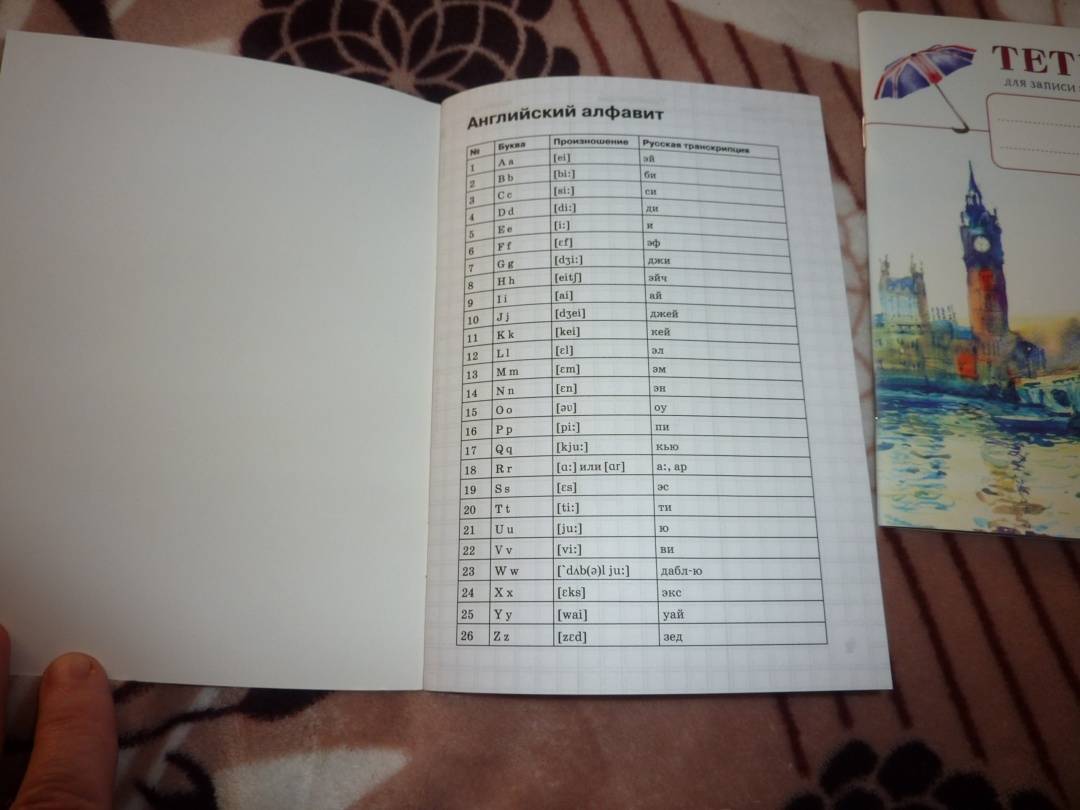 Английский алфавит
№ Буква Произношение Русская транскрипция
1 A a [ei] эй
2 B b [bi:] би
3 C c [si:] си
4 D d [di:] ди
5 E e [i:] и
6 F f [ɛf] эф
7 G g [dʒi:] джи
8 H h [eitʃ] эйч
9 I i [ai] ай
10 J j [dʒei] джей
11 K k [kei] кей
12 L l [ɛl] эл
13 M m [ɛm] эм
14 N n [ɛn] эн
15 O o [əʊ] оу
16 P p [pi:] пи
17 Q q [kju:] кью
18 R r [ɑ:] или [ɑr] а:, ар
19 S s [ɛs] эс
20 T t [ti:] ти
21 U u [ju:] ю
22 V v [vi:] ви
23 W w [`dʌb(ə)l ju:] дабл-ю
24 X x [ɛks] экс
25 Y y [wai] уай
26 Z z [zɛd] зед
ТЕТ
для записи